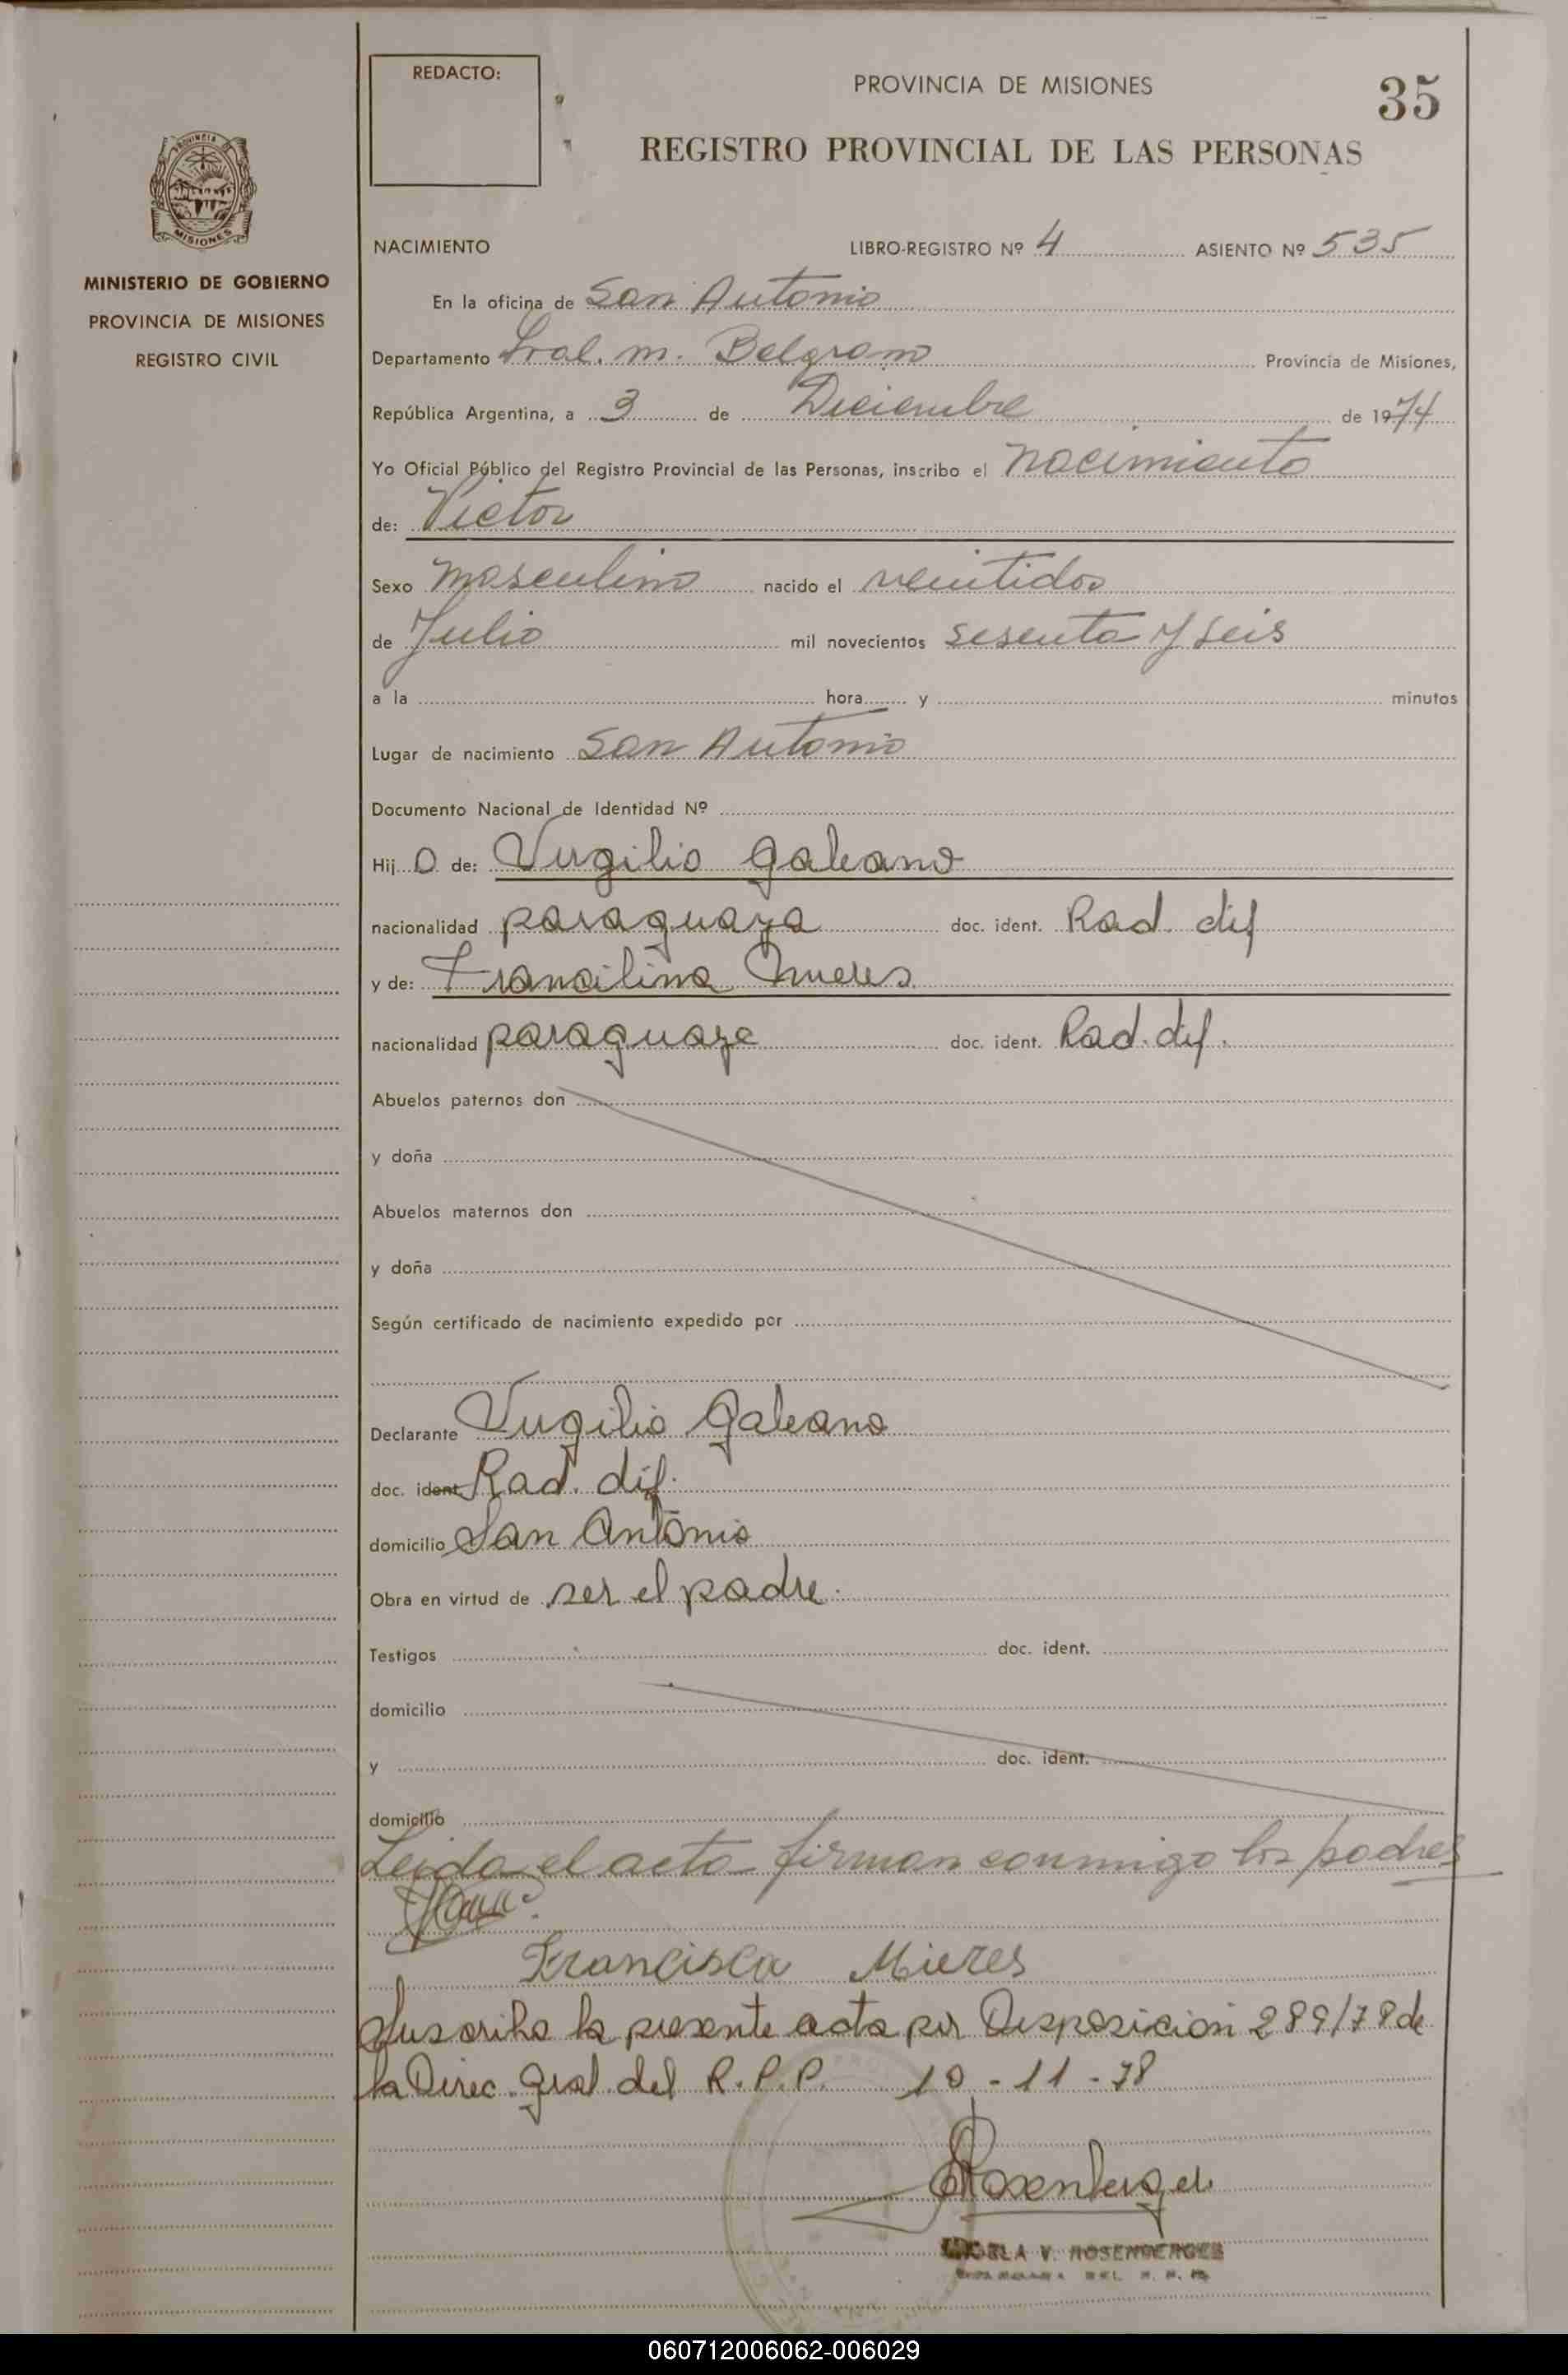 REDACTO:
PROVINCIA DE MISIONES
35
REGISTRO PROVINCIAL DE LAS PERSONAS
PROVINCIA DE
MISIONES
MINISTERIO DE GOBIERNO
PROVINCIA DE MISIONES
REGISTRO CIVIL
NACIMIENTO LIBRO-REGISTRO Nº 4 ASIENTO Nº 535
En la oficina de San Antonio
Departamento Gral. M. Belgrano Provincia de Misiones,
República Argentina, a 3 de Diciembre de 1974
Yo Oficial Público del Registro Provincial de las Personas, inscribo el nacimiento
de: Victor
Sexo masculino nacido el veintidos
de Julio mil novecientos sesenta y seis
a la hora y minutos
Lugar de nacimiento San Antonio
Documento Nacional de Identidad Nº
Hij O de: Virgilio Galeano
nacionalidad paraguaya doc. ident. Rad. dif
y de: Francilina
nacionalidad paraguaya doc. ident. Rad. dif.
Abuelos paternos don
y doña
Abuelos maternos don
y doña
Según certificado de nacimiento expedido por
Declarante Virgilio Galeano
doc. ident. Rad. dif.
domicilio San Antonio
Obra en virtud de ser el padre.
Testigos doc. ident.
domicilio
y doc. ident.
domicilio
Leida el acta firman conmigo los padres
Francisca Mieres
Suscribo la presente acta por Disposición 289/78 de
la Direc. Gral. del R.P.P. 10-11-78
Rosenberger
V. ROSENBERGER
060712006062-006029